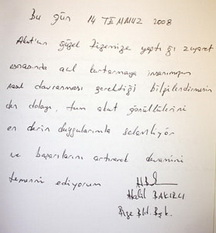 Bu gün 14 TEMMUZ 2008
Akut'un güzel Rizemize yaptığı ziyaret
esnasında acil kurtarmaya insanımızın
nasıl davranması gerektiği bilgilendirmesin
den dolayı, tüm akut gönüllülerini
en derin duygularımla selamlıyor
ve başarılarını artırarak devamını
temenni ediyorum
Halil BAKIRCI
Rize Bld. Bşk.